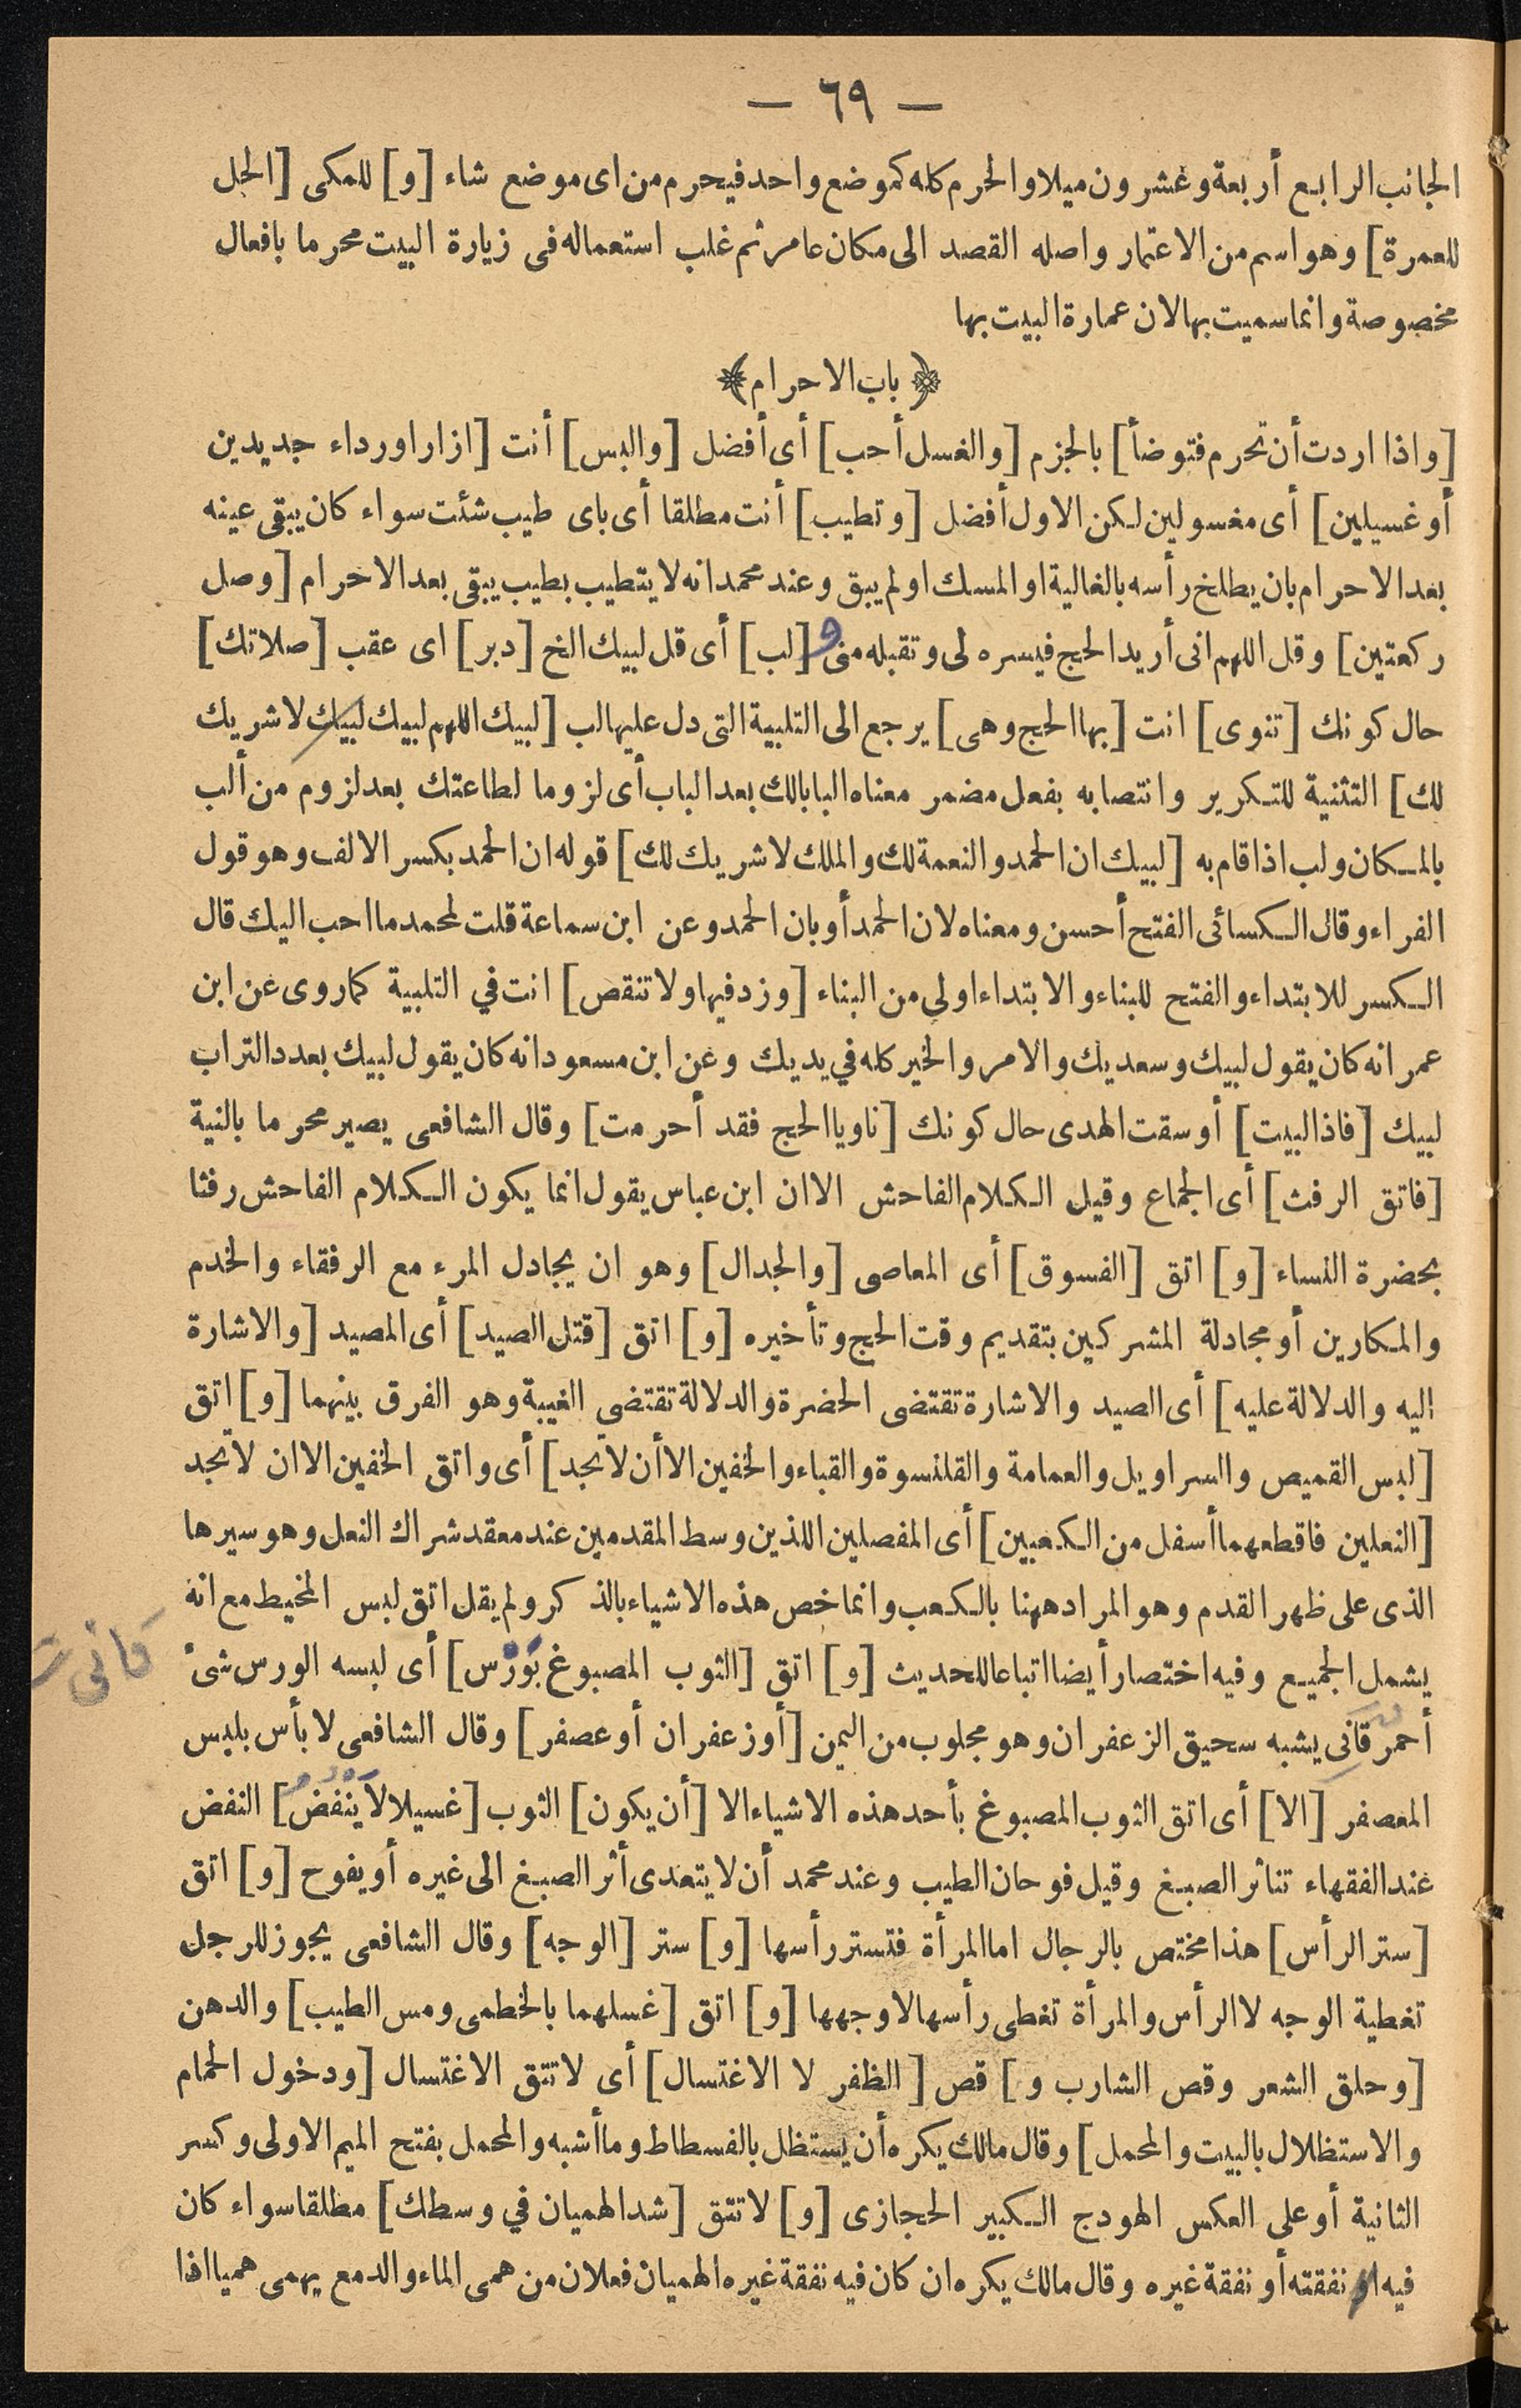 — ٦٩ —
الجانب الرابع أربعة وعشرون ميلا والحرم كله كموضع واحد فيحرم من اى موضع شاء [و] للمكى [الحل
للعمرة] وهو اسم من الاعتمار واصله القصد الى مكان عامر ثم غلب استعماله فى زيارة البيت محرما بافعال
مخصوصة وانما سميت بها لان عمارة البيت بها
﴿ باب الاحرام ﴾
[واذا اردت أن تحرم فتوضأ] بالجزم [والغسل أحب] أى أفضل [والبس] أنت [ازارا ورداء جديدين
أو غسيلين] أى مغسولين لكن الاول أفضل [وتطيب] أنت مطلقا أى باى طيب شئت سواء كان يبقى عينه
بعد الاحرام بان يطلخ رأسه بالغالية او المسك او لم يبق وعند محمد انه لا يتطيب بطيب يبقى بعد الاحرام [وصل
ركعتين] وقل اللهم انى أريد الحج فيسره لى وتقبله منى و [لب] أى قل لبيك الخ [دبر] اى عقب [صلاتك]
حال كونك [تنوى] انت [بها الحج وهى] يرجع الى التلبية التى دل عليها لب [لبيك اللهم لبيك لبيك لا شريك
لك] التثنية للتكرير وانتصابه بفعل مضمر معناه البابالك بعد الباب أى لزوما لطاعتك بعد لزوم من ألب
بالمكان ولب اذا قام به [لبيك ان الحمد والنعمة لك والملك لا شريك لك] قوله ان الحمد بكسر الالف وهو قول
الفراء وقال الكسائى الفتح أحسن ومعناه لان الحمد أو بان الحمد وعن ابن سماعة قلت لمحمد ما احب اليك قال
الكسر للابتداء والفتح للبناء والابتداء اولى من البناء [وزد فيها ولا تنقص] انت في التلبية كما روى عن ابن
عمر انه كان يقول لبيك وسعديك والامر والخير كله في يديك وعن ابن مسعود انه كان يقول لبيك بعدد التراب
لبيك [فاذا لبيت] أو سقت الهدى حال كونك [ناويا الحج فقد أحرمت] وقال الشافعى يصير محرما بالنية
[فاتق الرفث] أى الجماع وقيل الكلام الفاحش الا ان ابن عباس يقول انما يكون الكلام الفاحش رفثا
بحضرة النساء [و] اتق [الفسوق] أى المعاصى [والجدال] وهو ان يجادل المرء مع الرفقاء والخدم
والمكارين أو مجادلة المشركين بتقديم وقت الحج وتأخيره [و] اتق [قتل الصيد] أى المصيد [والاشارة
اليه والدلالة عليه] أى الصيد والاشارة تقتضى الحضرة والدلالة تقتضى الغيبة وهو الفرق بينهما [و] اتق
[لبس القميص والسراويل والعمامة والقلنسوة والقباء والخفين الا أن لا تجد] أى واتق الخفين الا ان لا تجد
[النعلين فاقطعهما أسفل من الكعبين] أى المفصلين اللذين وسط المقدمين عند معقد شراك النعل وهو سيرها
الذى على ظهر القدم وهو المراد ههنا بالكعب وانما خص هذه الاشياء بالذكر ولم يقل اتق لبس المخيط مع انه
يشمل الجميع وفيه اختصار أيضا اتباعا للحديث [و] اتق [الثوب المصبوغ بَوَرْس] أى لبسه الورس شئ
قانى
أحمر قانى يشبه سحيق الزعفران وهو مجلوب من اليمن [أو زعفران أو عصفر] وقال الشافعى لا بأس بلبس
المعصفر [الا] أى اتق الثوب المصبوغ بأحد هذه الاشياء الا [أن يكون] الثوب [غسيلا لا يَنْفُضُ] النفض
عند الفقهاء تناثر الصبغ وقيل فوحان الطيب وعند محمد أن لا يتعدى أثر الصبغ الى غيره أو يفوح [و] اتق
[ستر الرأس] هذا مختص بالرجال اما المرأة فتستر رأسها [و] ستر [الوجه] وقال الشافعى يجوز للرجل
تغطية الوجه لا الرأس والمرأة تغطى رأسها لا وجهها [و] اتق [غسلهما بالخطمى ومس الطيب] والدهن
[وحلق الشعر وقص الشارب و] قص [الظفر لا الاغتسال] أى لا تتق الاغتسال [ودخول الحمام
والاستظلال بالبيت والمحمل] وقال مالك يكره أن يستظل بالفسطاط وما أشبه والمحمل بفتح الميم الاولى وكسر
الثانية أو على العكس الهودج الكبير الحجازى [و] لا تتق [شد الهميان في وسطك] مطلقا سواء كان
فيه نفقته أو نفقة غيره وقال مالك يكره ان كان فيه نفقة غيره الهميان فعلان من همى الماء والدمع يهمى هميا اذا